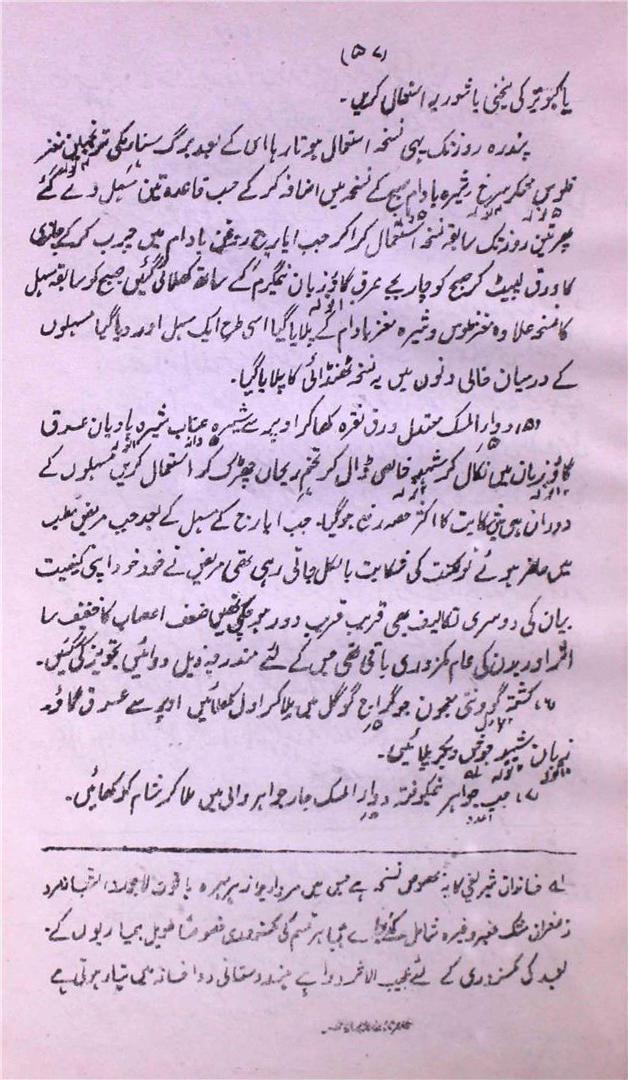 (۵۷)
یا کبوتر کی یخنی یا شوربہ استعمال کریں۔
پندرہ روز تک یہی نسخہ استعمال ہوتا رہا اس کے بعد برگ سناء مکی مغز
فلوس شکر سرخ شیرہ بادام صبح کے نسخہ میں اضافہ کر کے حب قاعدہ تین مسہل دے گئے
پھر تین روز تک سابقہ نسخہ استعمال کرا کر حب ایارج روغن بادام میں چرب کر کے چاندی
کا ورق لپیٹ کر صبح کو چار بجے عرق گاؤزبان نیمگرم کے ساتھ کھلائی گئیں صبح کو سابقہ مسہل
کا نسخہ علاوہ مغز فلوس و شیرہ مغز بادام کے پلایا گیا اسی طرح ایک مسہل اور دیا گیا مسہلوں
کے درمیان خالی دنوں میں یہ نسخہ ٹھنڈائی کا پلایا گیا۔
(۵) دوار المسک معتدل ورق نقرہ کھا کر اوپر سے شیرہ عناب شیرہ بادیان عرق
گاؤزبان میں نکال کر خالص ڈال کر تخم ریحاں چھڑک کر استعمال کریں مسہلوں کے
دوران ہی میں شکایت کا اکثر حصہ رفع ہو گیا۔ حب ایارج کے مسہل کے بعد جب مریض مطب
میں حاضر ہوئے تو لکنت کی شکایت بالکل جاتی رہی تھی مریض نے خود اپنی کیفیت
بیان کی دوسری تکالیف بھی قریب قریب دور ہو چکی تھیں ضعف اعصاب کا خفیف سا
اثر اور بدن کی عام کمزوری باقی تھی جس کے لئے مندرجہ ذیل دوائیں تجویز کی گئیں۔
(۶) کشتہ گودنتی معجون جوگراج گوگل میں ملا کر اول کھلائیں اوپر سے عرق گاؤ
زبان دیکر پلائیں۔
(۷) حب جواہر دوار المسک حار جواہر والی میں ملا کر شام کو کھائیں۔
لہ خاندان شریفی کا یہ مخصوص نسخہ ہے جس میں مروارید زہر مہرہ یاقوت لاجورد
زعفران مشک عنبر وغیرہ شامل ہر قسم کی کمزوری خصوصاً طویل بیماریوں کے۔
بعد کی کمزوری کے لئے عجیب الاثر دوا ہے ہندوستانی دواخانہ میں تیار ہوتی ہے